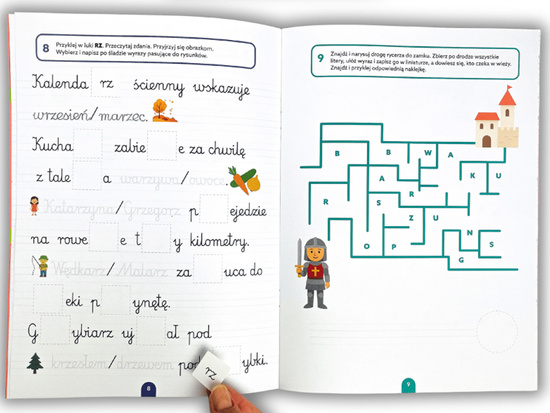 8
Przyklej w luki RZ. Przeczytaj zdania. Przyjrzyj się obrazkom.
Wybierz i napisz po śladzie wyrazy pasujące do rysunków.
Kalenda rz ścienny wskazuje
wrzesień/marzec.
Kucha zabie e za chwilę
z tale a warzywa/owoce.
Katarzyna/Grzegorz p ejedzie
na rowe e t y kilometry.
Wędkarz/Malarz za uca do
eki p ynętę.
G ybiarz uj ał pod
krzesłem/drzewem pod ybki.
rz
8
9
Znajdź i narysuj drogę rycerza do zamku. Zbierz po drodze wszystkie
litery, ułóż wyraz i zapisz go w liniaturze, a dowiesz się, kto czeka w wieży.
Znajdź i przyklej odpowiednią naklejkę.
B B W A
A K U
R S R
Z U
N S
O P G
9